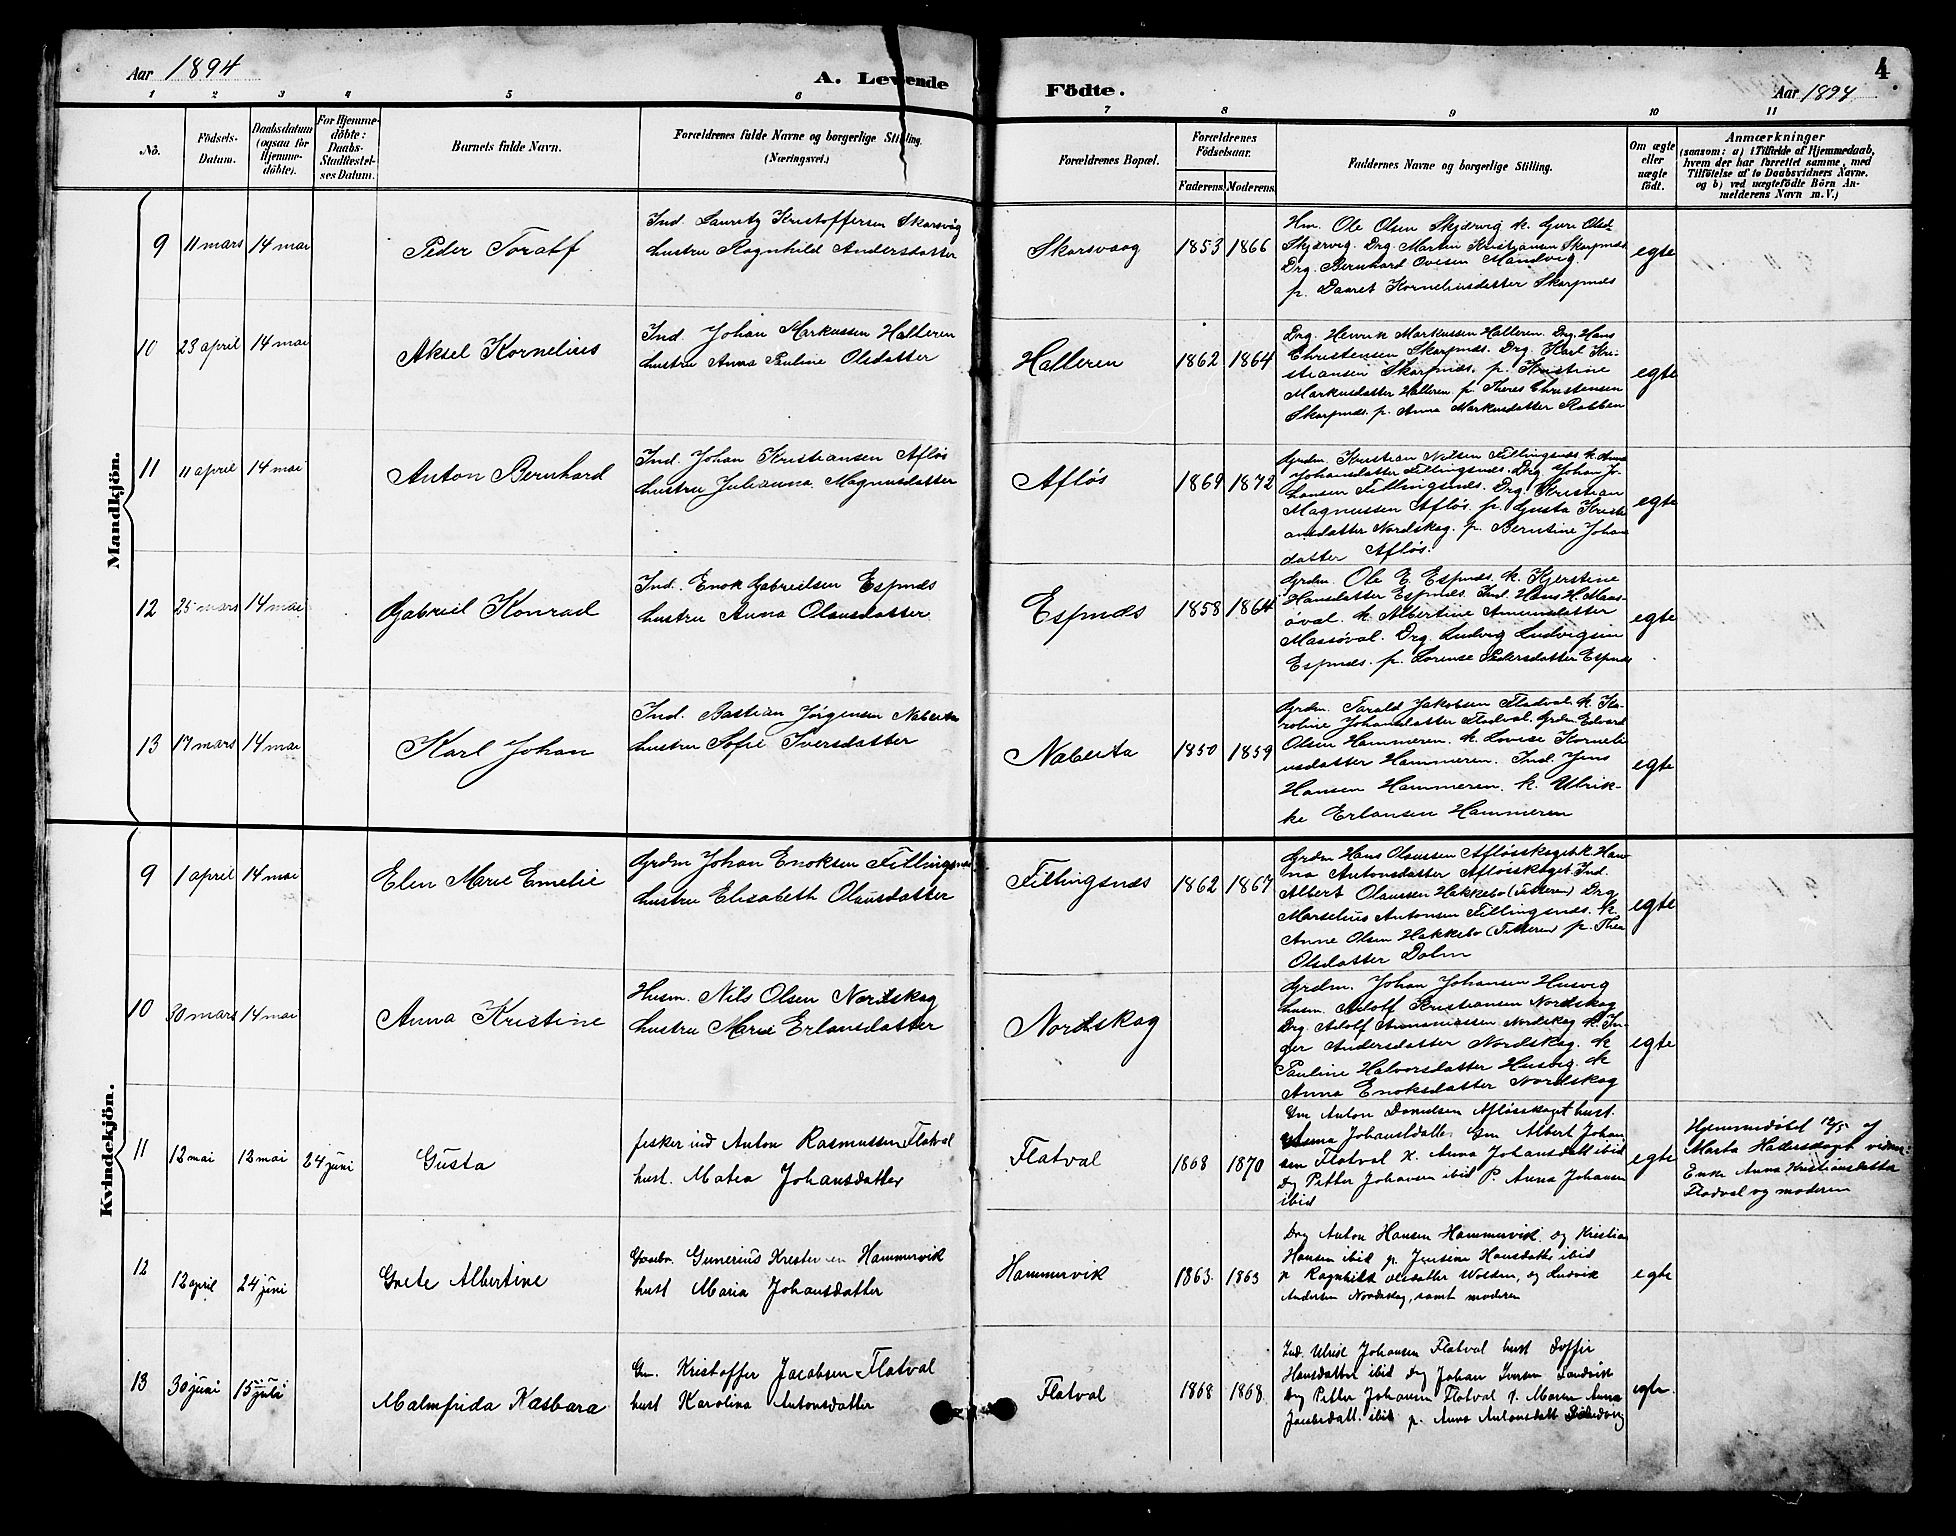 Aar 1894
A. Levende
Födte.
Aar 1894
4
1 2 3 4 5 6 7 8 9 10 11
No.
Födsels-
Datum.
Daabsdatum
(ogsaa for
Hjemme-
döbte).
For Hjemme-
döbte:
Daabs-
Stadfæstel-
ses Datum.
Barnets fulde Navn.
Forældrenes fulde Navne og borgerlige Stilling.
(Næringsvei.)
Forældrenes Bopæl.
Forældrenes
Födselsaar.
Faderens. Moderens.
Faddernes Navne og borgerlige Stilling.
Om ægte
eller
uægte
födt.
Anmærkninger
(saasom: a) i Tilfælde af Hjemmedaab,
hvem der har forrettet samme, med
Tilföielse af to Daabsvidners Navne.
og b) ved uægtefödte Börn An-
melderens Navn m.V.)
Mandkjön.
9 11 mars 14 mai
Peder Toralf
Ind. Lauritz Kristoffersen Skarsvåg
hustru Ragnhild Andersdatter
Skarsvaag
1853 1866
Hm. Ole Olsen Skjærvig k. Guri Olsd.
Skjærvig. Drg. Martin Kristiansen Skarpnæs
Drg. Bernhard Ovesen Mandvig
p. Daaret Korneliusdatter Skarpnæs
egte
10 23 april 14 mai
Aksel Kornelius
Ind. Johan Markussen Halleren
hustru Anna Pauline Olsdatter
Halleren
1862 1864
Drg. Henrik Markussen Halleren. Drg. Hans
Christensen Skarpnæs. Drg. Karl Kri-
stiansen Skarpnæs. p. Kristine
Markusdatter Halleren p. Theres Christensen
Skarpnæs. p. Anna Markusdatter Rabben
egte
11 11 april 14 mai
Anton Bernhard
Ind. Johan Kristiansen Afløs
hustru Julianna Magnusdatter
Afløs
1869 1872
Grdm. Kristian Nilsen Fillingsnæs k. Anna
Johansdatter Fillingsnæs. Drg. Johan Jo-
hansen Fillingsnæs. Drg. Kristian
Magnussen Afløs. p. Gusta Kristi-
ansdatter Nordskag. p. Berntine Johan
datter Afløs.
egte
12 25 mars 14 mai
Gabriel Konrad
Ind. Enok Gabrielsen Espnæs
hustru Anna Olausdatter
Espnæs
1858 1864
Grdm. Ole E. Espnæs. k. Kjerstine
Hansdatter Espnæs. Ind. Hans H. Maas-
øval. k. Albertine Amundsdatter
Massøval. Drg. Ludvig Ludvigsen
Espnæs. p. Lorense Pedersdatter Espnæs
egte
13 17 mars 14 mai
Karl Johan
Ind. Bastian Jørgensen Nabeita
hustru Sofie Iversdatter
Nabeita
1850 1859
Grdm. Tarald Jakobsen Fladval. k. Ka-
roline Johansdatter Fladval. Grdm. Edvard
Olsen Hammeren. k. Lovise Korneli
usdatter Hammeren. Ind. Jens
Hansen Hammeren. k. Ulrik-
ke Erlansen Hammeren
egte
Kvindekjön.
9 1 april 14 mai
Elen Marie Emelie
Grdm Johan Enoksen Fillingsnæs
hustru Elisabeth Olausdatter
Fillingsnæs
1862 1867
Grdm Hans Olaussen Afløsskaget k. Han
na Antonsdatter Afløsskaget. Ind.
Albert Olaussen Hakkebo (Fitteren) Drg
Marselius Antonsen Fillingsnæs. k.
Anne Olsen Hakkebo (Fitteren) p. Thea
Olsdatter Dolm
egte
10 30 mars 14 mai
Anna Kristine
Husm. Nils Olsen Nordskag
hustru Marie Erlansdatter
Nordskag
Grdm. Johan Johansen Husvig
husm. Adolf Kristiansen Nordskag
Drg. Adolf Annaniassen Nordskag k. In-
ger Andersdatter Nordskag. k
Pauline Halvorsdatter Husvig. k
Anna Enoksdatter Nordskag
egte
11 12 mai 12 mai 24 juni
Gusta
fisker ind Anton Rasmussen Flatval
hust. Matea Johansdatter
Flatval
1868 1870
Gm Anton Danielsen Afløsskaget hust.
Anna Johansdatter Gm Albert Johan
sen Flatval k. Anna Johansdatt ibid
Dg Petter Johansen ibid P. Anna Johansen
ibid
egte
Hjemmedøbt 12/5 af
Marta Hallersdagt vidner:
Enke Anna Kristiansdatter
Fladval og moderen
12 12 april 24 juni
Grete Albertine
Gunerius Kristen en Hammervik
hust Maria Johansdatter
Hammervik
1863. 1863
Drg Anton Hansen Hammervik. og Kristian
Hansen ibid p. Jensine Hansdatter ibid
p Ragnhild olsdatter Wolden, og Ludvik
Andersen Nordskag, samt moderen
egte
13 30 juni 15 juli
Malmfrida Kasbara
Gm. Kristoffer Jacobsen Flatval
hust Karolina Antonsdatter
Flatval
1868 1868
Ind. Ulrik Johansen Flatval hust Soffie
Hansdatter ibid Drg Johan Iversen Sandvik
Drg Petter Johansen Flatval p. Maren Anna
Jacobsdatt. ibid p. Anna Antonsdatt Sandvig
egte.